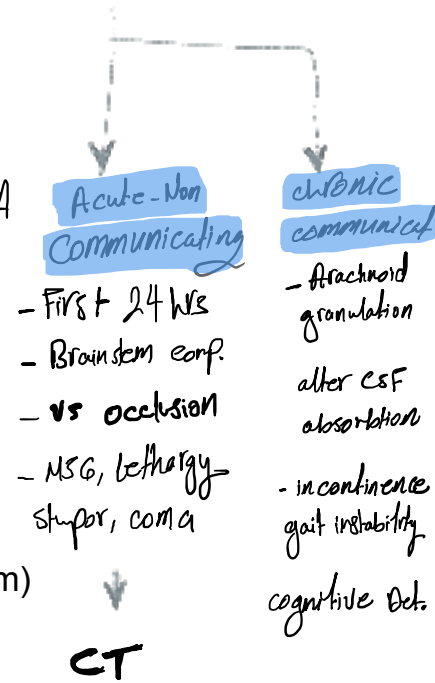 A
Acute-Non
Communicating
- First 24 hrs
- Brainstem comp.
- vs occlusion
- MSG, Lethargy
stupor, coma
m)
CT
chronic
communicat
- Arachnoid
granulation
alter CSF
absorbtion
- incontinence
gait instability
cognitive Det.